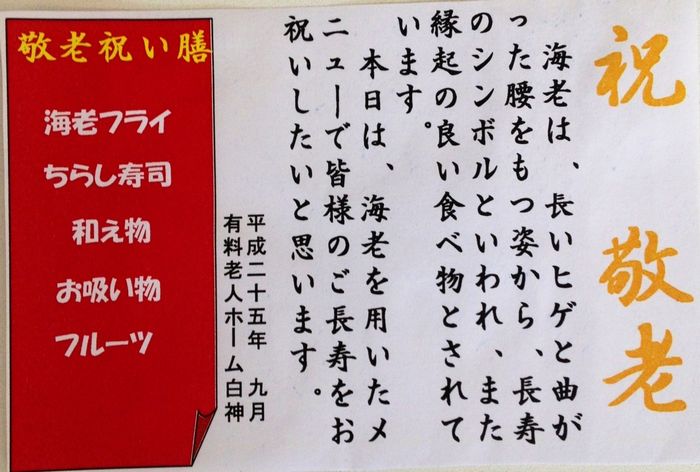 祝 敬老
海老は、長いヒゲと曲が
った腰をもつ姿から、長寿
のシンボルといわれ、また
縁起の良い食べ物とされて
います。
本日は、海老を用いたメ
ニューで皆様のご長寿をお
祝いしたいと思います。
平成二十五年 九月
有料老人ホーム白神
敬老祝い膳
海老フライ
ちらし寿司
和え物
お吸い物
フルーツ